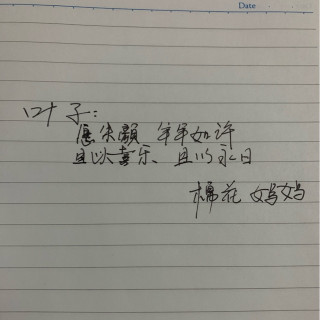 Date
叶子：
愿朱颜 年年如许
且以喜乐、且以永日
棉花妈妈